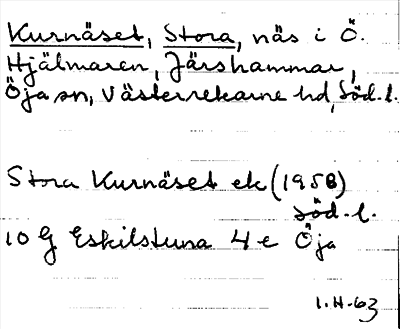 Kurnäset, Stora, näs i Ö.
Hjälmaren, Järshammar,
Öja sn, Västerrekarne hd, Söd.l.
Stora Kurnäset ek (1958)
Söd.l.
10 G Eskilstuna 4 e Öja
1.H.63